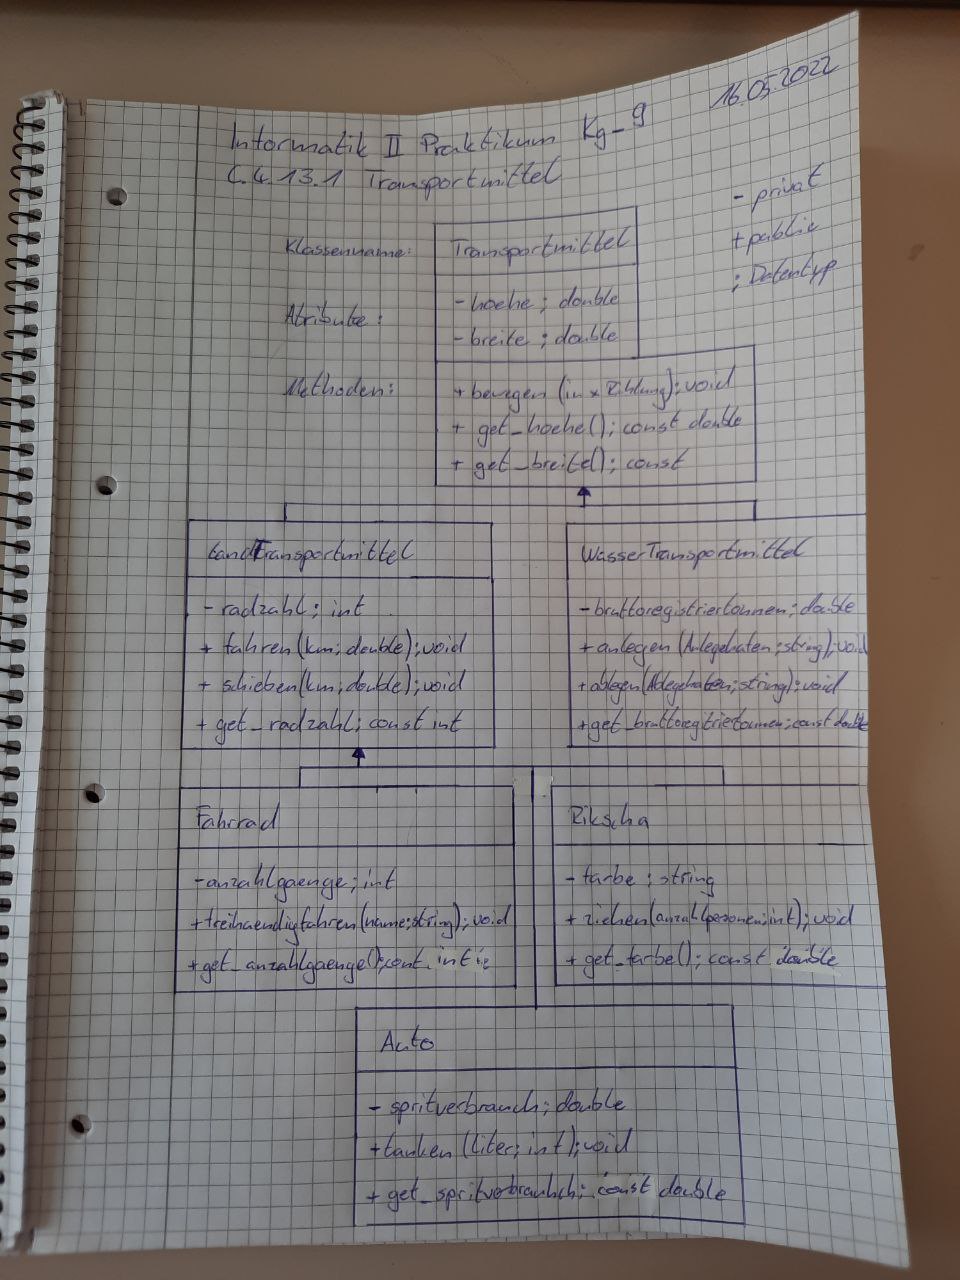 16.05.2022
Informatik II Praktikum Kg-9
C.4.13.1 Transportmittel
- privat
+ public
; Datentyp
Klassenname: Transportmittel
Atribute: - hoehe ; double
- breite ; double
Methoden: + bewegen (in x Richtung); void
+ get_hoehe(); const double
+ get_breite(); const
LandTransportmittel
- radzahl; int
+ fahren(km; double); void
+ schieben(km; double); void
+ get_radzahl; const int
WasserTransportmittel
- bruttoregistriertonnen; double
+ anlegen (Anlegehafen; string); void
+ ablegen(Ablegehafen; string); void
+ get_bruttoregitriertounen; const double
Fahrrad
- anzahlgaenge; int
+ freihaendigfahren(name; string); void
+ get_anzahlgaenge(); cont int
Rikscha
- farbe ; string
+ ziehen(anzahlpersonen; int); void
+ get_farbe(); const double
Auto
- spritverbrauch; double
+ tanken (liter; int); void
+ get_spritverbrauhch; const double